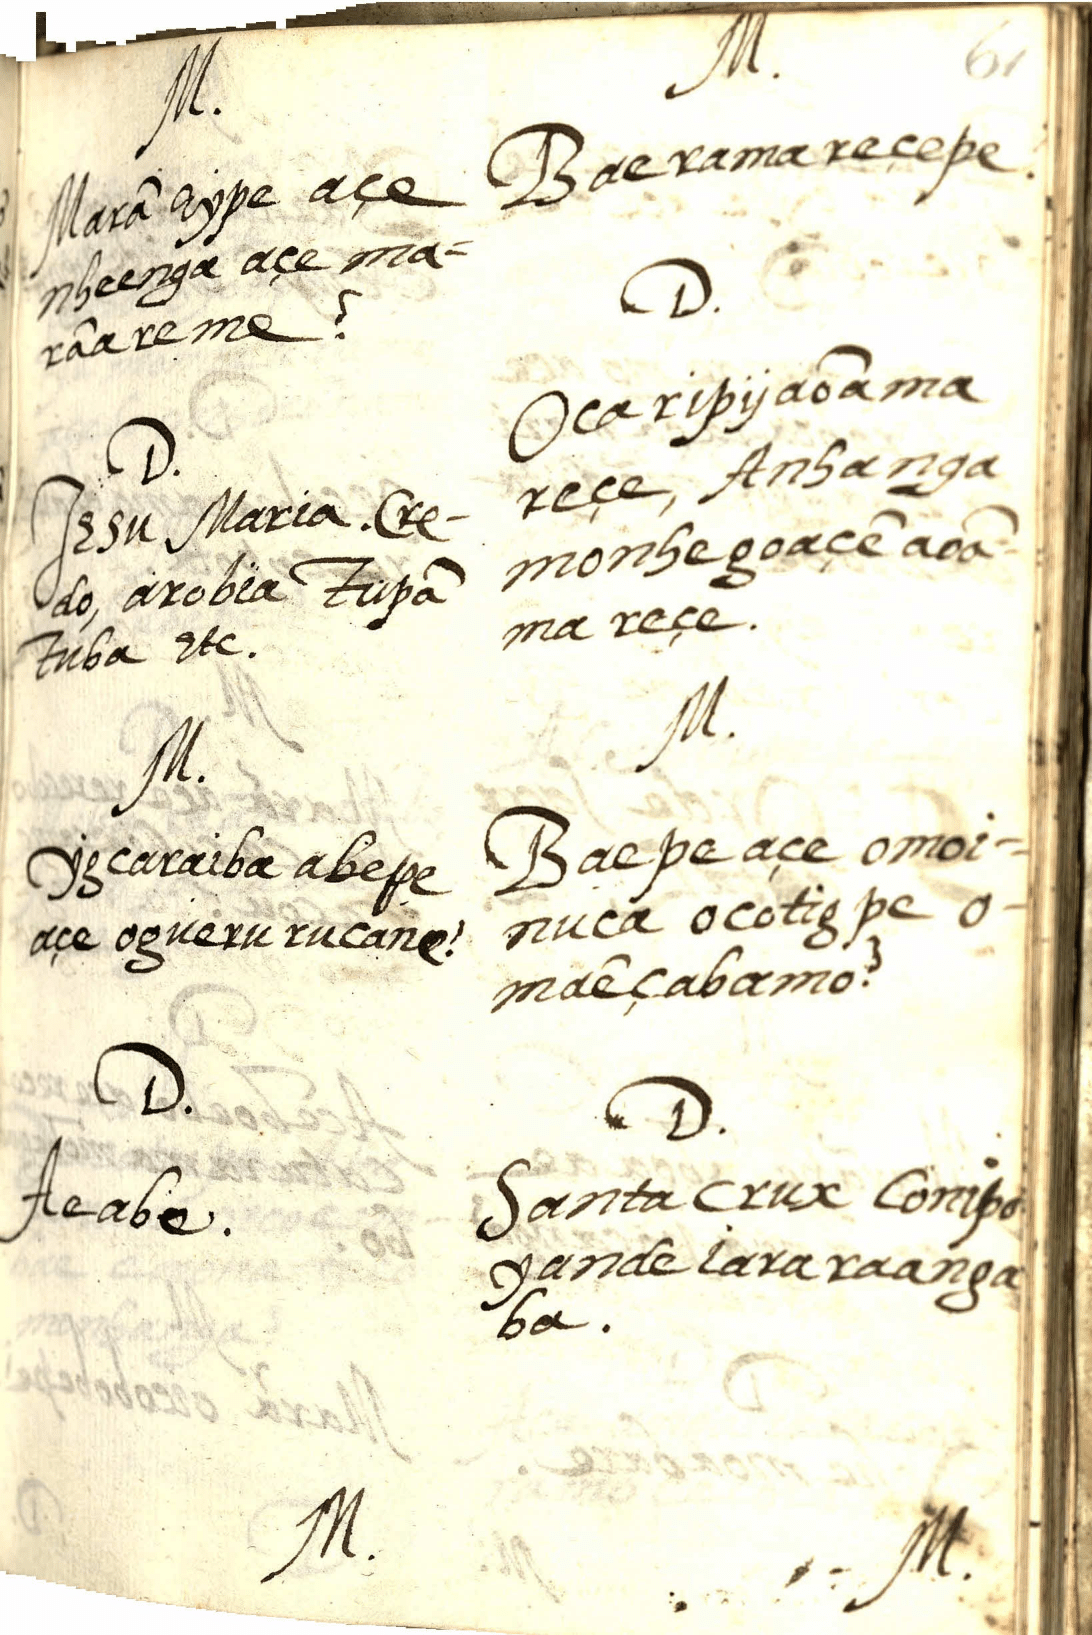 M.
Marã eỹpe açe
nheenga açe ma-
rãareme?
D.
Jesu Maria. Cre-
do, arobia Tupã
tuba etc.
M.
Ygcaraiba abepe
açe ogueru rucane?
D.
Aeabe.
M.
61
M.
Baeramareçepe?
D.
Oçaripijaoãma
reçe, Anhanga
monhegoaçẽ aoã-
ma reçe.
M.
Baepe açe omoi-
nuca ocotigpe o-
maẽçabamo?
D.
Santa Crux Conipo
yande iara raanga
ba.
M.